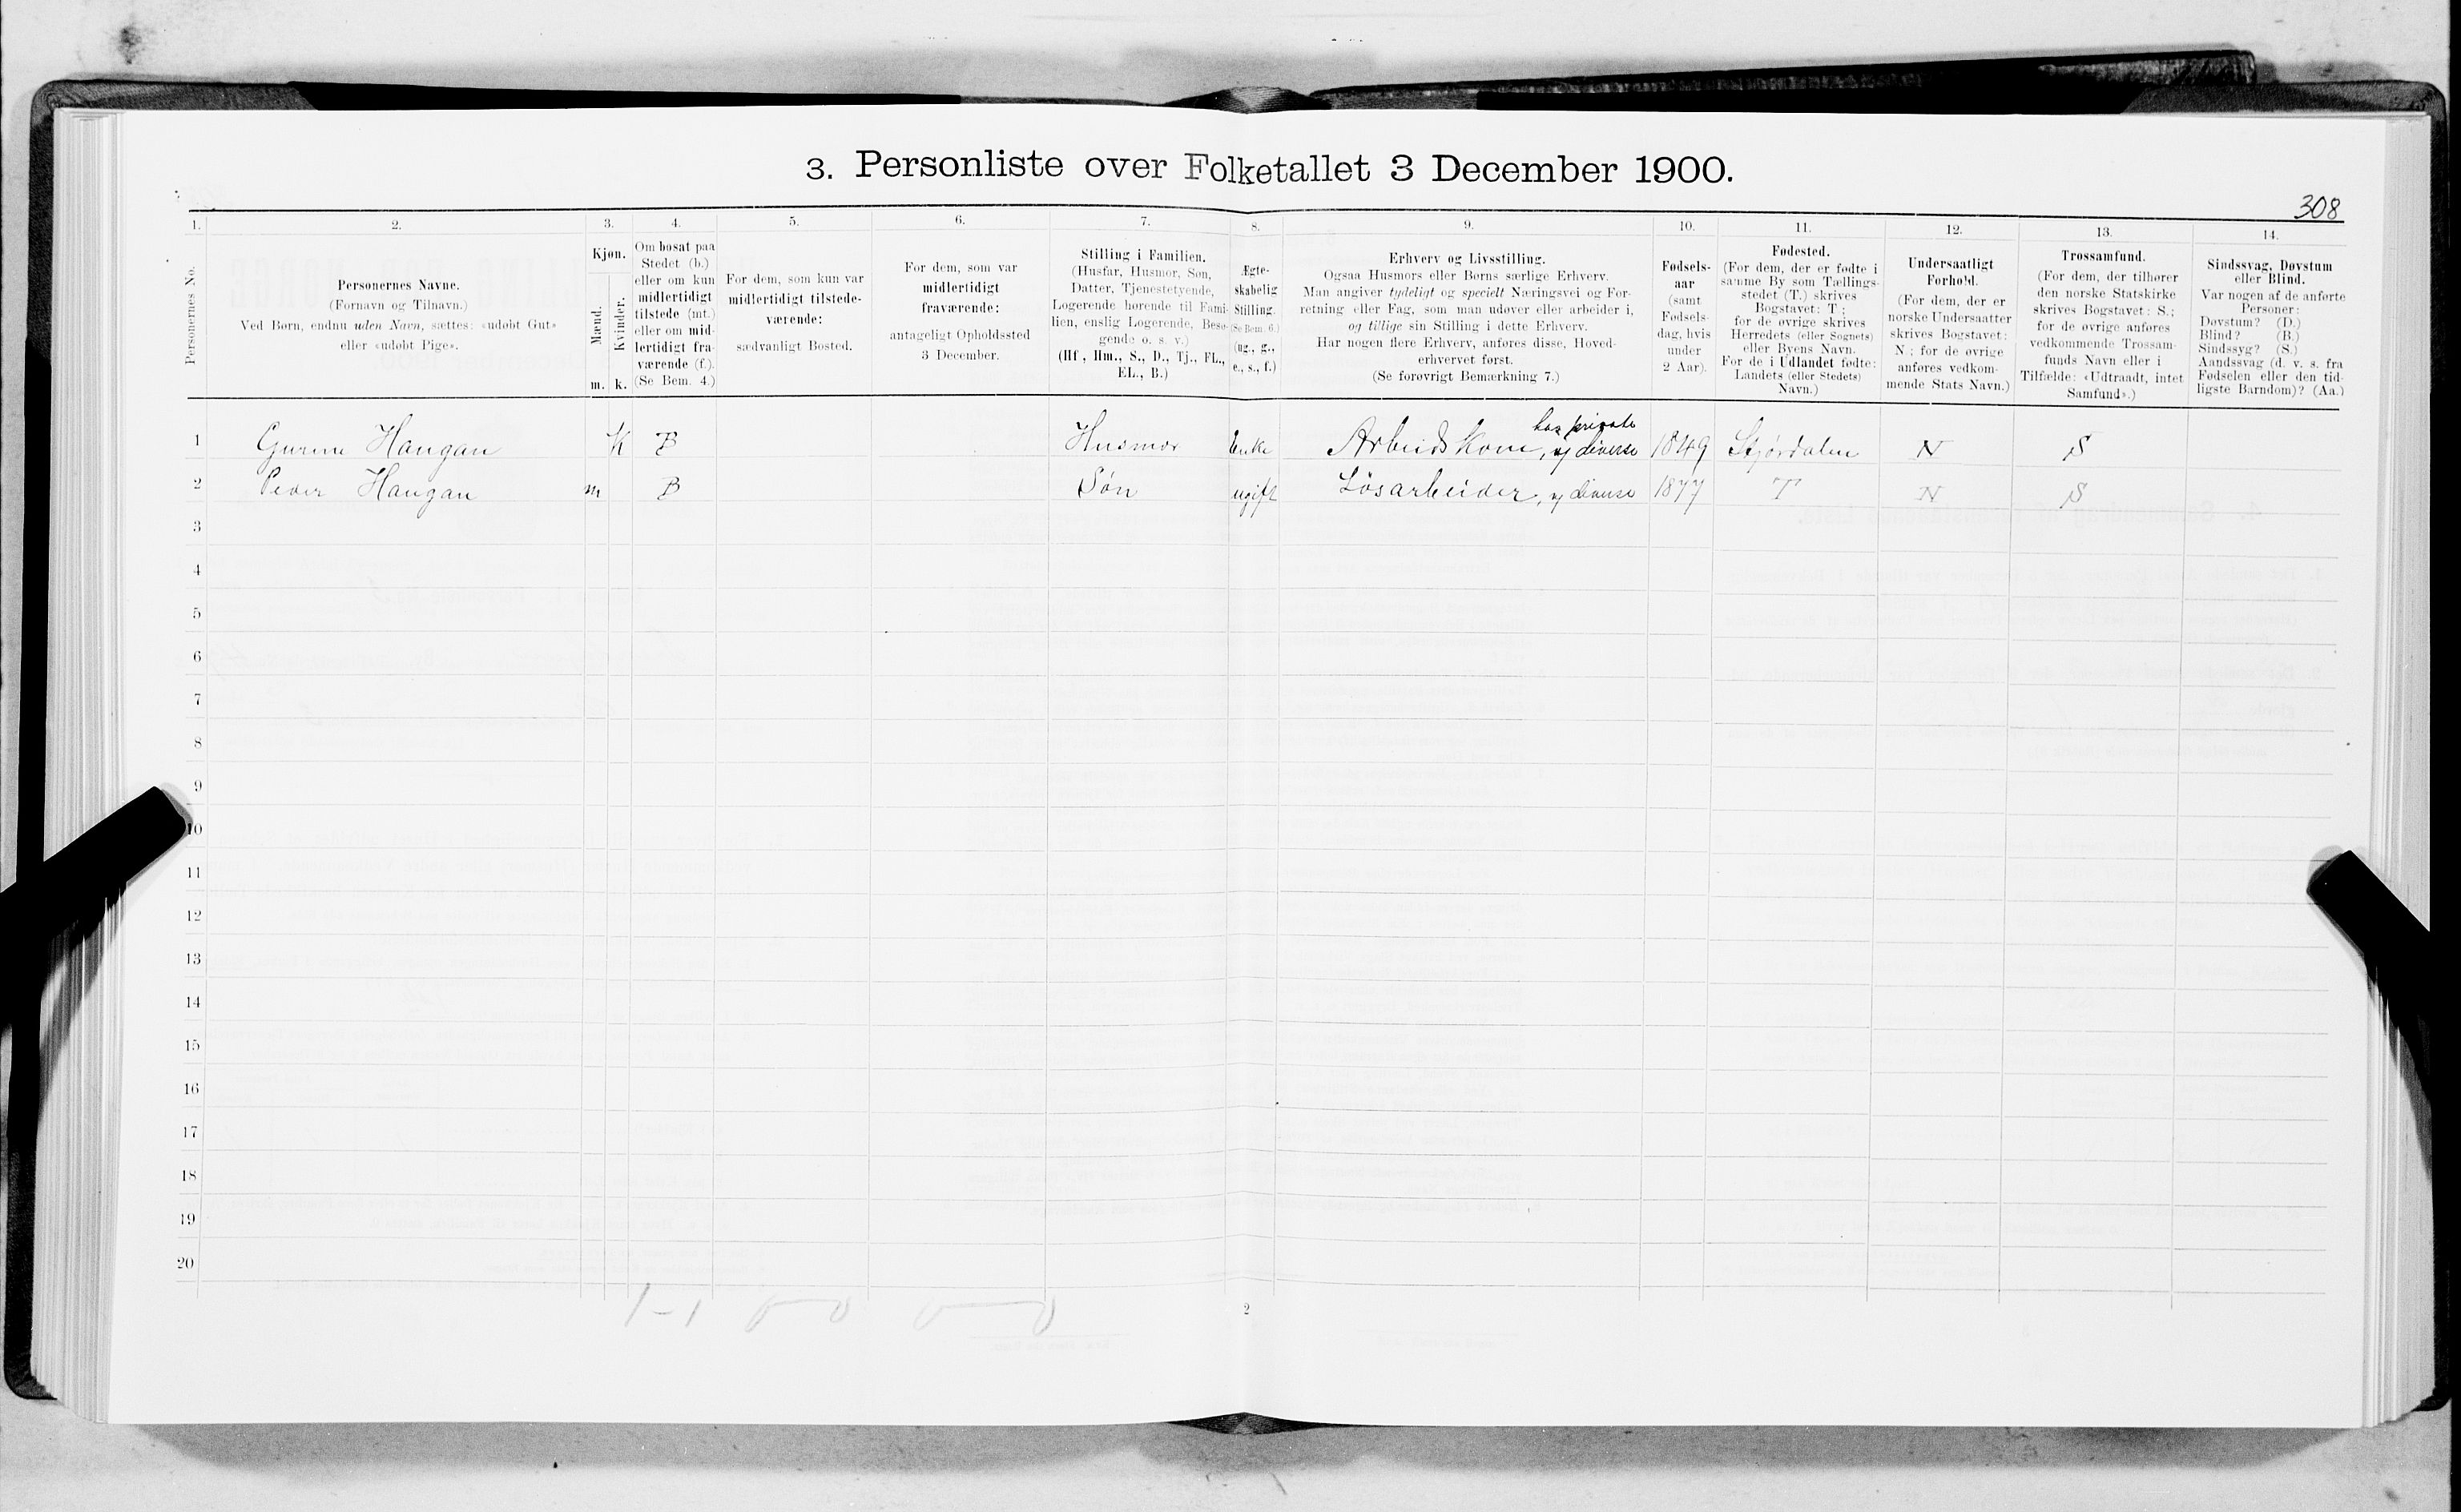 3. Personliste over Folketallet 3 December 1900.
308
1. 2. 3. 4. 5. 6. 7. 8. 9. 10. 11. 12. 13. 14.
Personernes No.
Personernes Navne.
(Fornavn og Tilnavn.)
Ved Børn, endnu uden Navn, sættes: «udøbt Gut»
eller «udøbt Pige».
Kjøn.
Mænd.
Kvinder.
m. k.
Om bosat paa
Stedet (b.)
eller om kun
midlertidigt
tilstede (mt.)
eller om mid-
lertidigt fra-
værende (f.).
(Se Bem. 4.)
For dem, som kun var
midlertidigt tilstede-
værende:
sædvanligt Bosted.
For dem, som var
midlertidigt
fraværende:
antageligt Opholdssted
3 December.
Stilling i Familien.
(Husfar, Husmor, Søn,
Datter, Tjenestetyende,
Logerende hørende til Fami-
lien, enslig Logerende, Besø-
gende o. s. v.)
(Hf., Hm., S., D., Tj., FL.,
EL., B.)
Ægte-
skabelig
Stilling.
(Se Bem. 6.)
(ug., g.,
e., s., f.)
Erhverv og Livsstilling.
Ogsaa Husmors eller Børns særlige Erhverv.
Man angiver tydeligt og specielt Næringsvei og For-
retning eller Fag, som man udøver eller arbeider i,
og tillige sin Stilling i dette Erhverv.
Har nogen flere Erhverv, anføres disse, Hoved-
erhvervet først.
(Se forøvrigt Bemærkning 7.)
Fødsels-
aar
(samt
Fødsels-
dag, hvis
under
2 Aar).
Fødested.
(For dem, der er fødte i
samme By som Tællings-
stedet (T.) skrives
Bogstavet: T;
for de øvrige skrives
Herredets (eller Sognets)
eller Byens Navn.
For de i Udlandet fødte:
Landets (eller Stedets)
Navn.)
Undersaatligt
Forhold.
(For dem, der er
norske Undersaatter
skrives Bogstavet:
N.; for de øvrige
anføres vedkom-
mende Stats Navn.)
Trossamfund.
(For dem, der tilhører
den norske Statskirke
skrives Bogstavet: S.;
for de øvrige anføres
vedkommende Trossam-
funds Navn eller i
Tilfælde: «Udtraadt, intet
Samfund».)
Sindssvag, Døvstum
eller Blind.
Var nogen af de anførte
Personer:
Døvstum? (D.)
Blind? (B.)
Sindssyg? (S.)
Aandssvag (d. v. s. fra
Fødselen eller den tid-
ligste Barndom)? (Aa.)
hos private
1 Haugan K B Husmor Enke Arbeidskone, diverse 1849 Stjørdalen N S
2 Peder Haugan m B Søn ugift Løsarbeider, diverse 1877 T N S
3
4
5
6
7
8
9
10
11
12
13
14
15
16
17
18
19
20
1-1 0-0 0-0
2